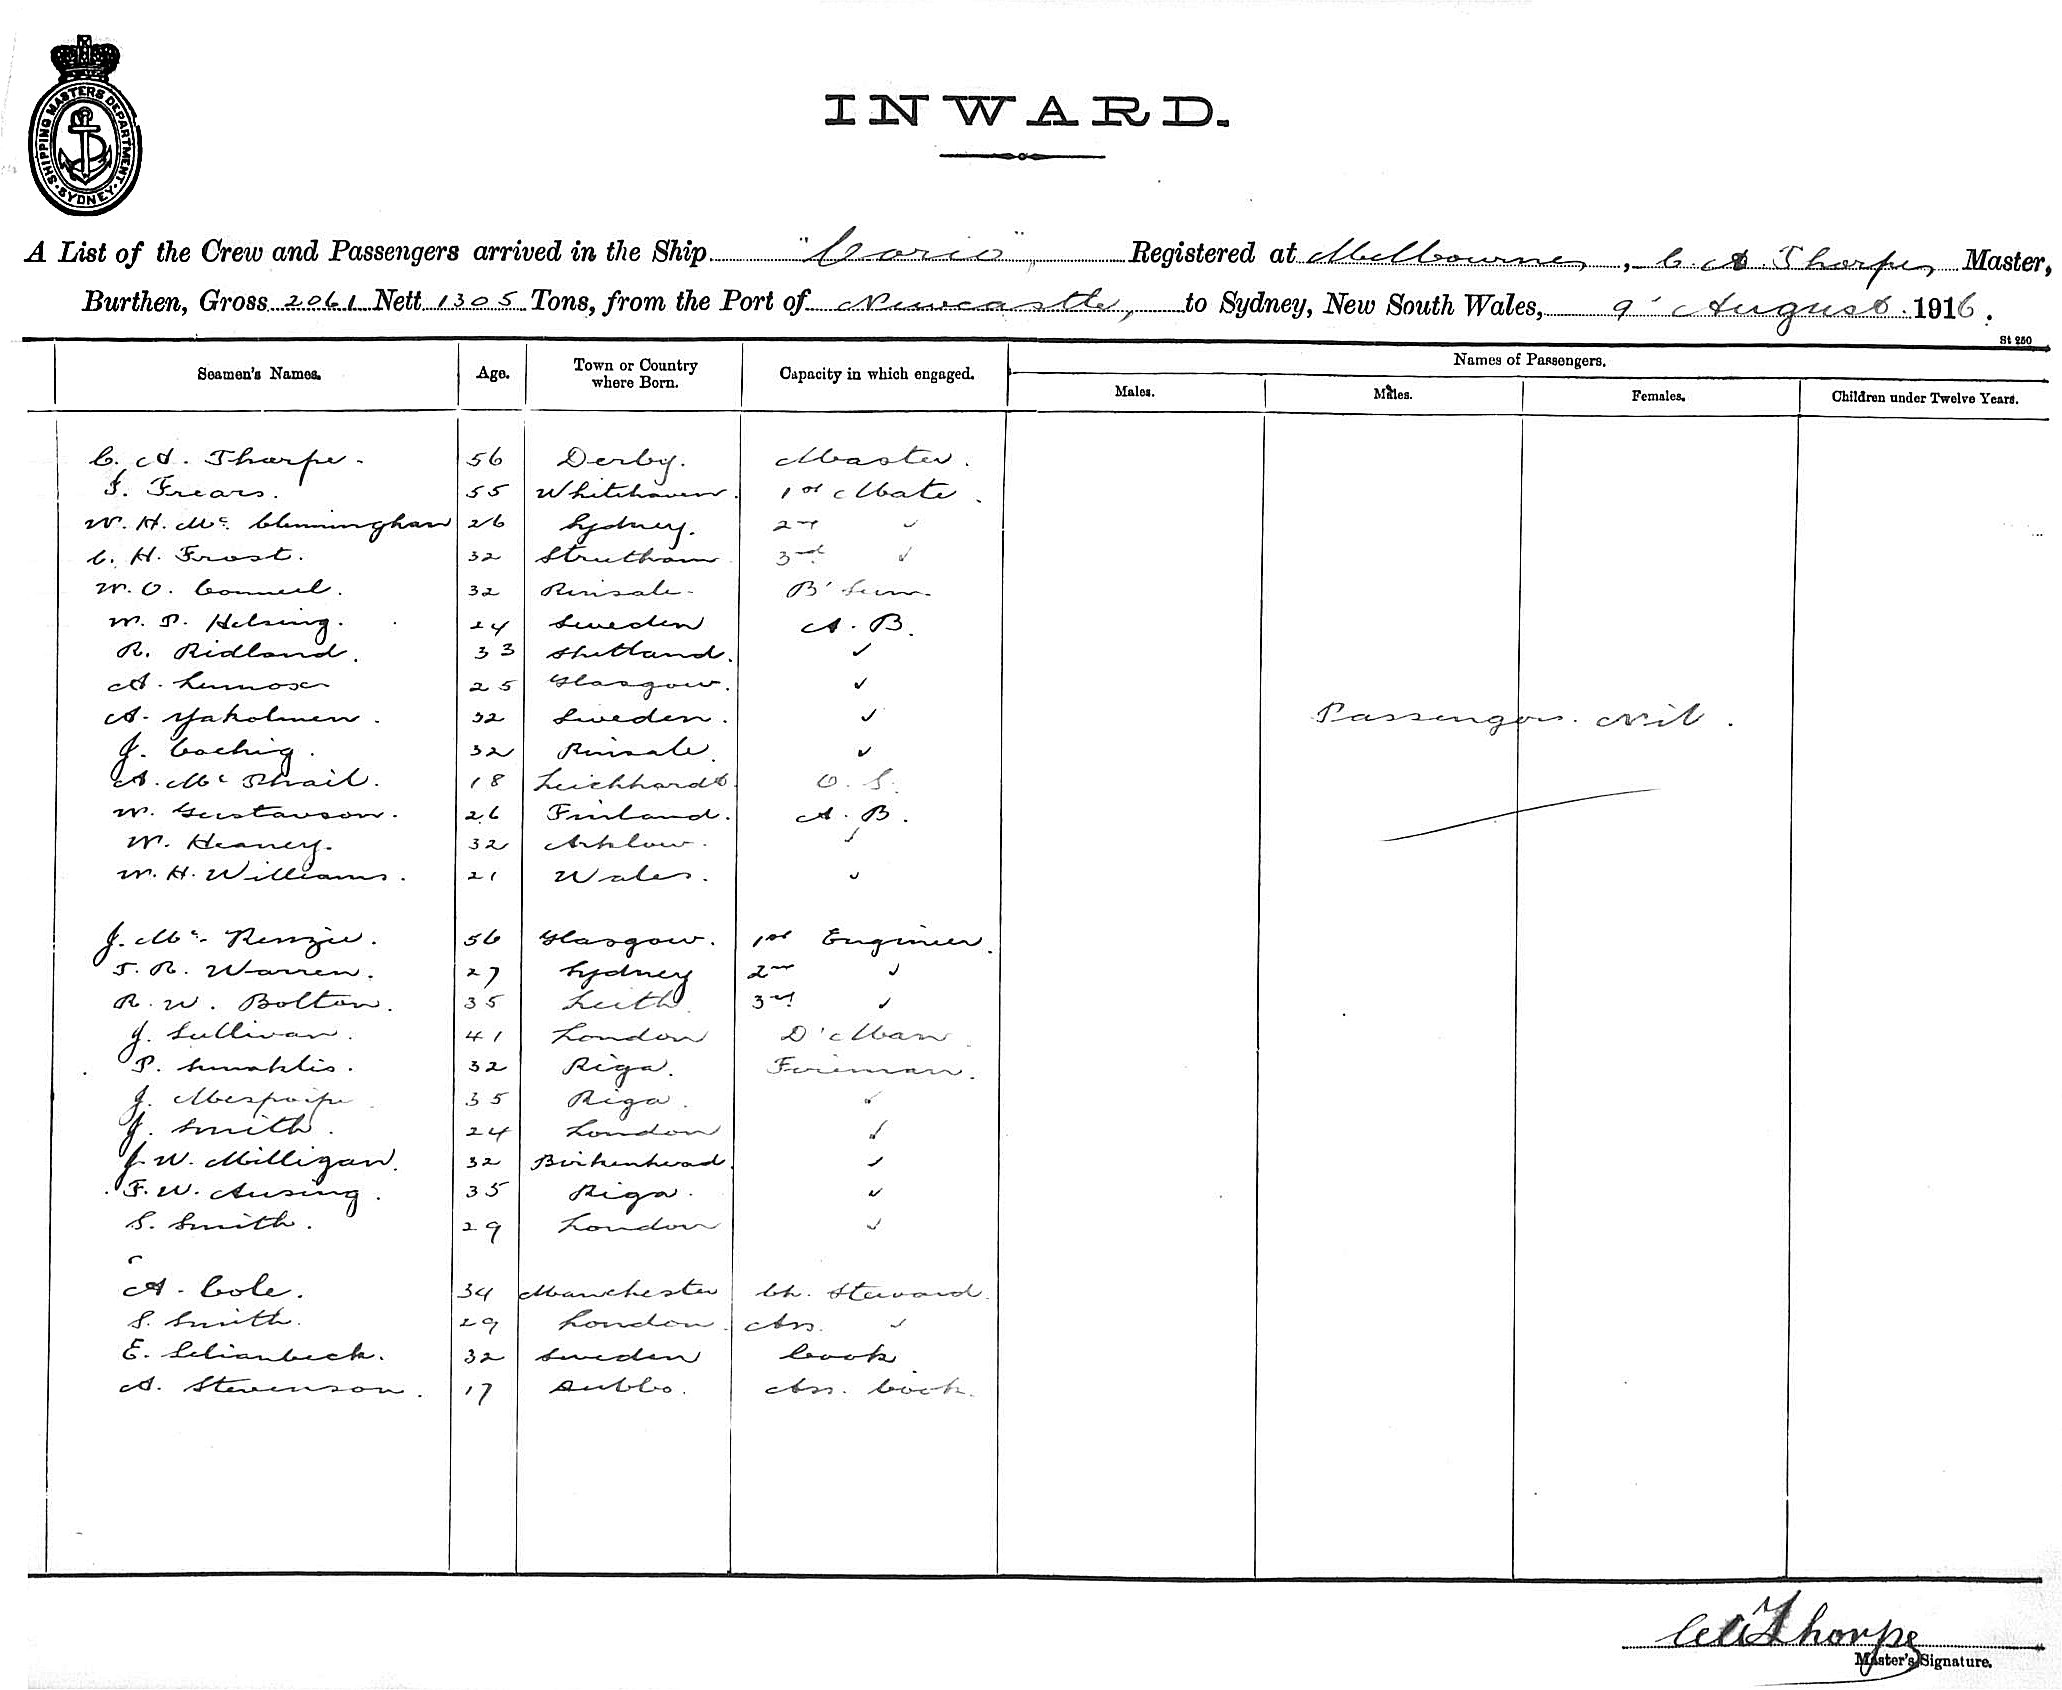 SHIPPING MASTERS DEPARTMENT. SYDNEY.
INWARD.
A List of the Crew and Passengers arrived in the Ship "Corio", Registered at Melbourne, C. A. Thorpe, Master,
Burthen, Gross 2061 Nett 1305 Tons, from the Port of Newcastle, to Sydney, New South Wales, 9' August. 1916.
St 250
Seamen's Names. Age. Town or Country where Born. Capacity in which engaged. Names of Passengers.
Males. Males. Females. Children under Twelve Years.
C. A. Thorpe. 56 Derby. Master.
F. Frears. 55 Whitehaven. 1st Mate.
W. H. Mc 26 Sydney. 2nd "
C. H. Frost. 32 3rd "
W. O. Connell. 32 Kinsale. B'
W. P. Helsing. 24 Sweden A. B.
R. Ridland. 33 Shetland. "
A. Lennox 25 Glasgow. "
A. Yakolmen. 32 Sweden. "
Passengers. Nil.
J. 32 Kinsale. "
A. Mc Phail. 18 Leichhardt. O. S.
W. Gustavson. 26 Finland. A. B.
W. Heaney. 32 Arklow. "
W. H. Williams. 21 Wales. "
J. Mc Kenzie. 56 Glasgow. 1st Engineer.
T. R. Warren. 27 Sydney 2nd "
R. W. Bolton. 35 Leith. 3rd "
J. Sullivan. 41 London D' Man.
P. 32 Riga. Fireman.
J. 35 Riga. "
J. Smith. 24 London "
J. W. Milligan. 32 Birkenhead. "
F. W. Ausing. 35 Riga. "
S. Smith. 29 London "
A. Cole. 34 Manchester Ch. Steward.
S. Smith. 29 London. Ass. "
E. 32 Sweden Cook
A. Stevenson. 17 Dubbo. Ass. Cook.
C A Thorpe
Master's Signature.